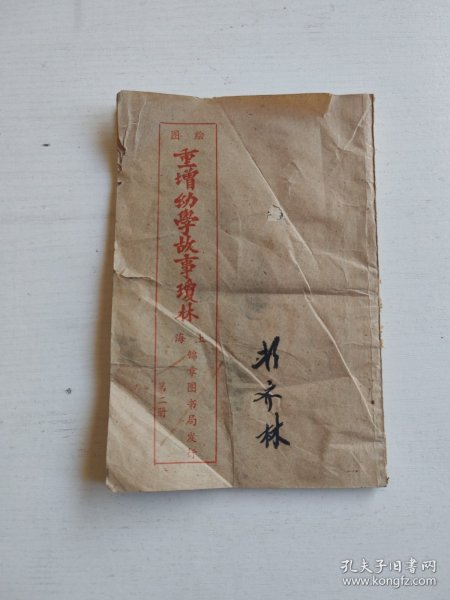 绘图
重增幼学故事瓊林
上海
锦章图书局发行
第二册
齐林
孔夫子旧书网
www.kongfz.com